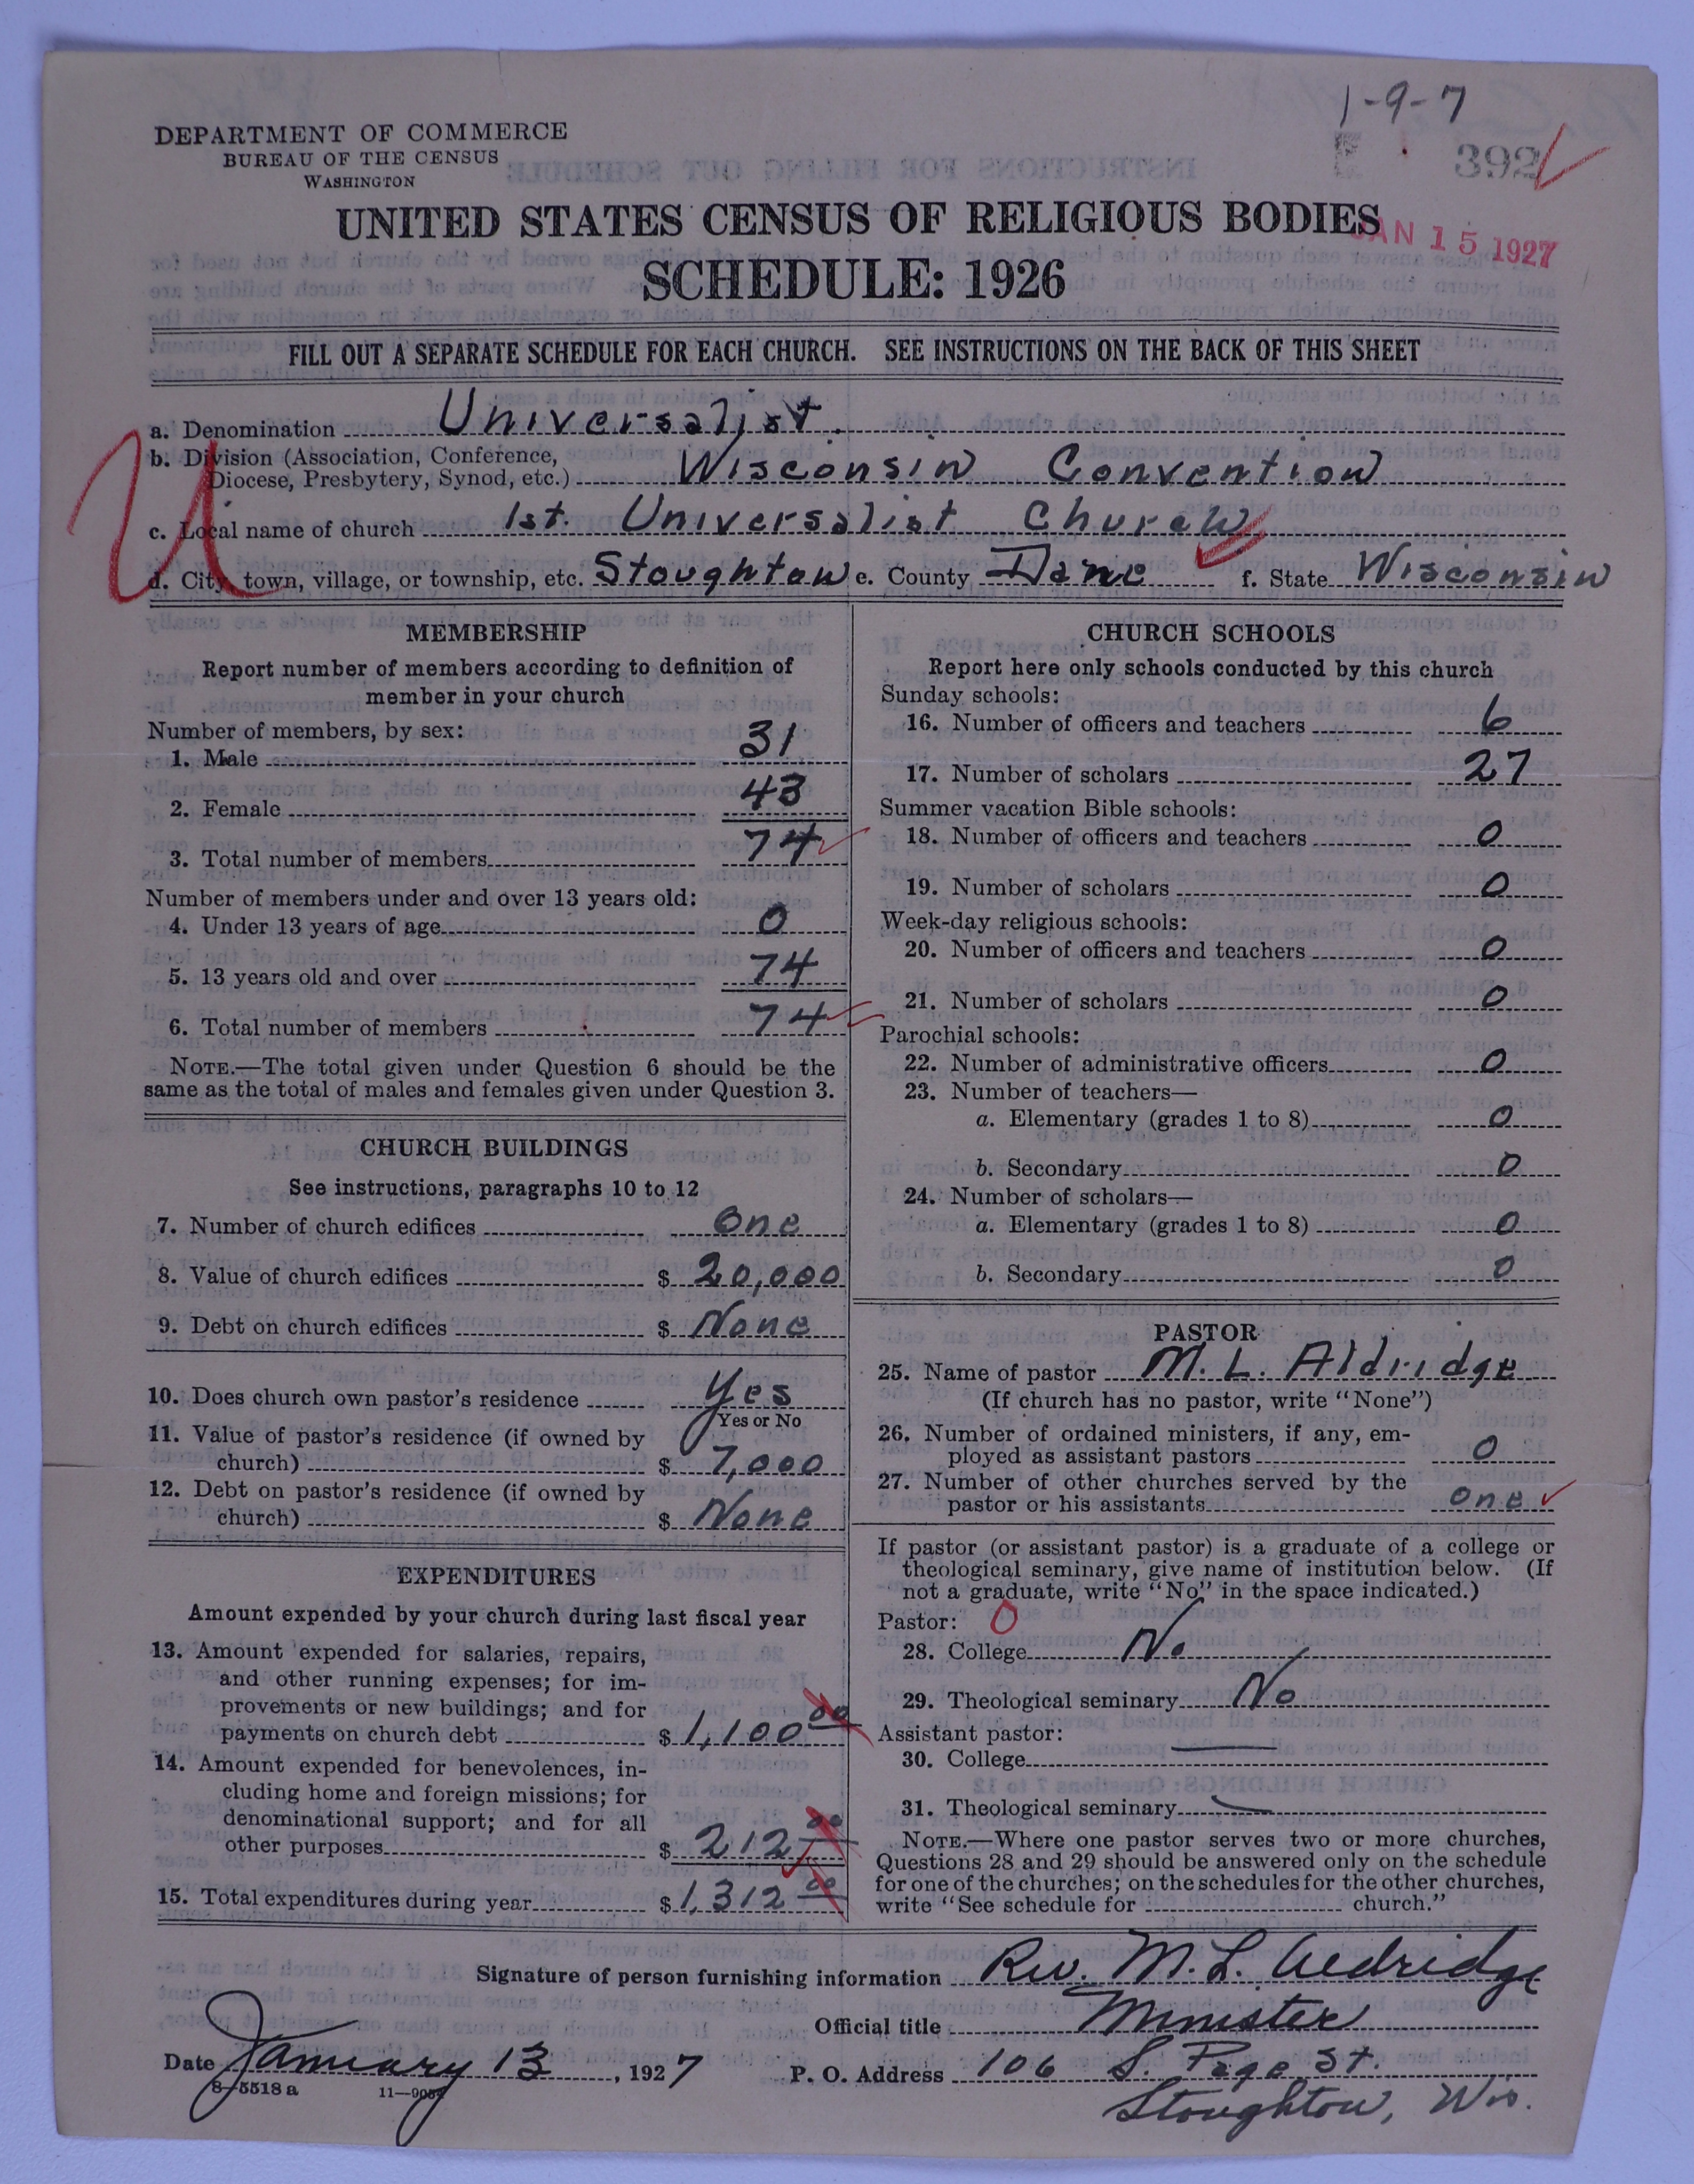 1-9-7
392
DEPARTMENT OF COMMERCE
BUREAU OF THE CENSUS
WASHINGTON
UNITED STATES CENSUS OF RELIGIOUS BODIES
JAN 15 1927
SCHEDULE: 1926
FILL OUT A SEPARATE SCHEDULE FOR EACH CHURCH. SEE INSTRUCTIONS ON THE BACK OF THIS SHEET
U
a. Denomination Universalist.
b. Division (Association, Conference,
Diocese, Presbytery, Synod, etc.) Wisconsin Convention
c. Local name of church 1st. Universalist Church
d. City, town, village, or township, etc. Stoughton e. County Dane f. State Wisconsin
MEMBERSHIP
Report number of members according to definition of
member in your church
Number of members, by sex:
1. Male 31
2. Female 43
3. Total number of members 74
Number of members under and over 13 years old:
4. Under 13 years of age 0
5. 13 years old and over 74
6. Total number of members 74
NOTE.—The total given under Question 6 should be the
same as the total of males and females given under Question 3.
CHURCH BUILDINGS
See instructions, paragraphs 10 to 12
7. Number of church edifices One
8. Value of church edifices $ 20,000
9. Debt on church edifices $ None
10. Does church own pastor's residence Yes
Yes or No
11. Value of pastor's residence (if owned by
church) $ 7,000
12. Debt on pastor's residence (if owned by
church) $ None
EXPENDITURES
Amount expended by your church during last fiscal year
13. Amount expended for salaries, repairs,
and other running expenses; for im-
provements or new buildings; and for
payments on church debt $ 1,100 00
14. Amount expended for benevolences, in-
cluding home and foreign missions; for
denominational support; and for all
other purposes $ 212 00
15. Total expenditures during year $ 1,312 00
CHURCH SCHOOLS
Report here only schools conducted by this church
Sunday schools:
16. Number of officers and teachers 6
17. Number of scholars 27
Summer vacation Bible schools:
18. Number of officers and teachers 0
19. Number of scholars 0
Week-day religious schools:
20. Number of officers and teachers 0
21. Number of scholars 0
Parochial schools:
22. Number of administrative officers 0
23. Number of teachers—
a. Elementary (grades 1 to 8) 0
b. Secondary 0
24. Number of scholars—
a. Elementary (grades 1 to 8) 0
b. Secondary 0
PASTOR
25. Name of pastor M. L. Aldridge
(If church has no pastor, write "None")
26. Number of ordained ministers, if any, em-
ployed as assistant pastors 0
27. Number of other churches served by the
pastor or his assistants one
If pastor (or assistant pastor) is a graduate of a college or
theological seminary, give name of institution below. (If
not a graduate, write "No" in the space indicated.)
Pastor: 0
28. College No
29. Theological seminary No
Assistant pastor:
30. College
31. Theological seminary
NOTE.—Where one pastor serves two or more churches,
Questions 28 and 29 should be answered only on the schedule
for one of the churches; on the schedules for the other churches,
write "See schedule for church."
Signature of person furnishing information Rev. M. L. Aldridge
Official title Minister
Date January 13, 1927 P. O. Address 106 S. Page St.
Stoughton, Wis.
8—5518 a